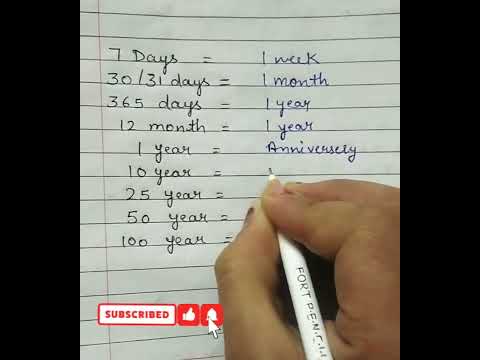 7 Days = 1 week
30/31 days = 1 month
365 days = 1 year
12 month = 1 year
1 year = Anniversery
10 year =
25 year =
50 year =
100 year =
FORT P.E.N.C.I
SUBSCRIBED